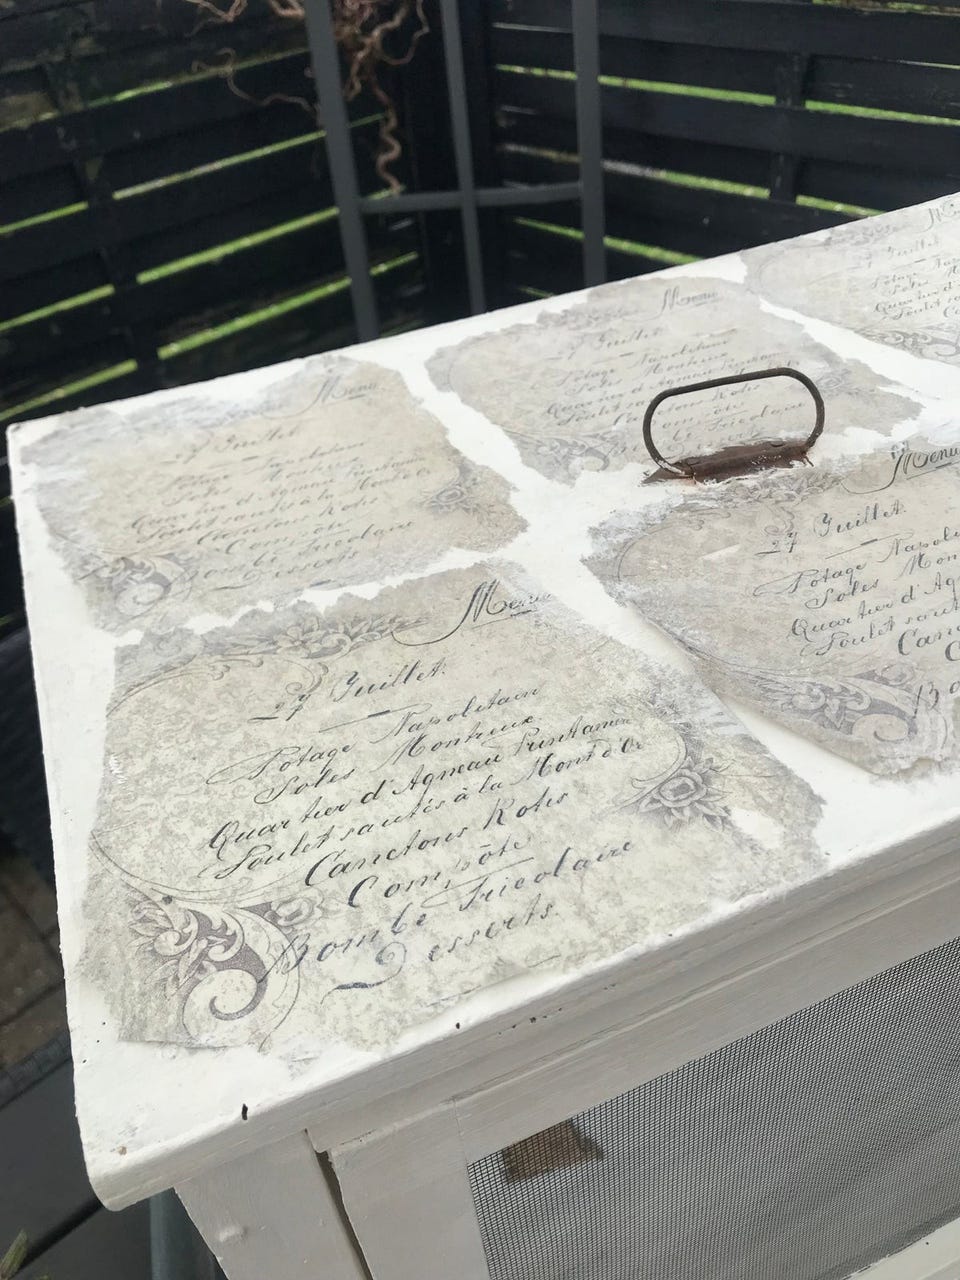 Menu
27 Juillet.
Potage Napolitain
Soles Montreux
Quartier d'Agneau Printanier
Poulet sautés à la Mont d'Or
Canetons Rotis
Compôte
Bombe Tricolaire
Desserts.
Menu
27 Juillet.
Potage Napolitain
Soles Montreux
Quartier d'Agneau Printanier
Poulet sautés à la Mont d'Or
Canetons Rotis
Compôte
Bombe Tricolaire
Desserts
Menu
27 Juillet
Potage Napolitain
Soles Montreux
Quartier d'Agneau Printanier
Poulet sautés à la
Canetons Rotis
Compôte
Tricolaire
Menu
27 Juillet.
Potage Napoli
Soles Mon
Quartier d'Ag
Poulet saut
Can
C
Bo